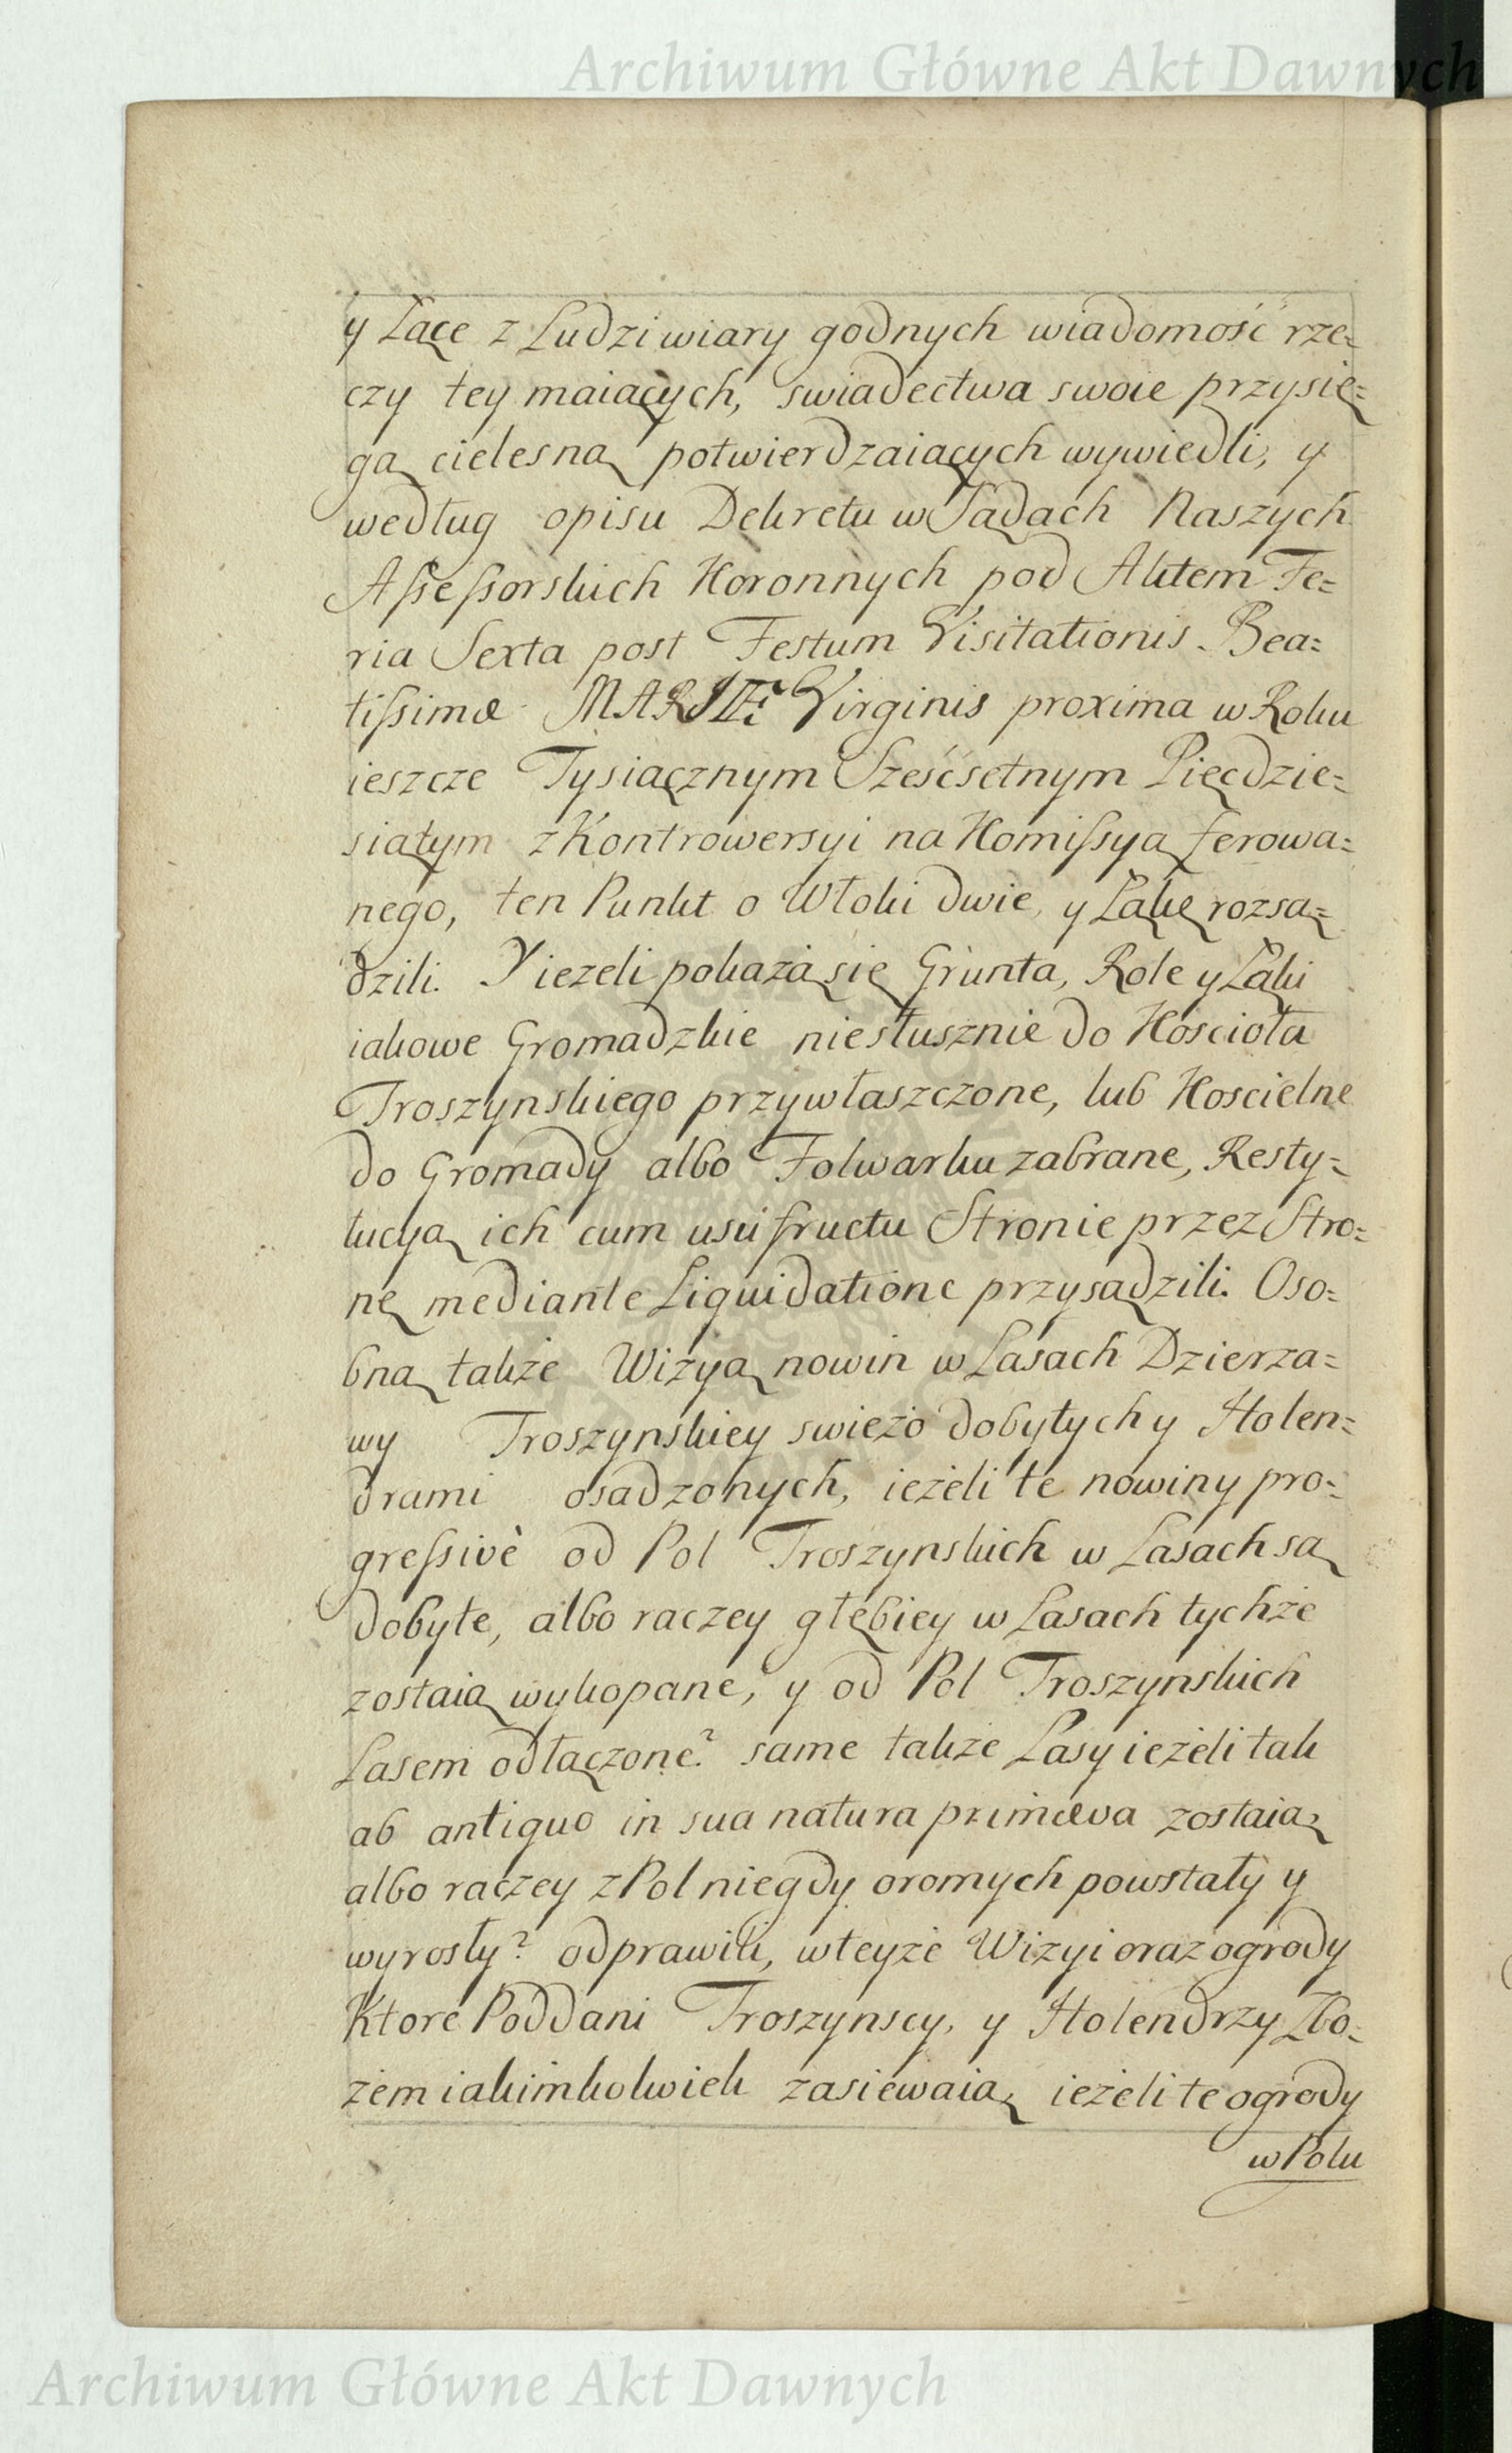 Archiwum Główne Akt Dawnych
y Łące z Ludzi wiary godnych wiadomość rze=
czy tey maiących, swiadectwa swoie przysię=
gą cielesną potwierdzaiących wywiedli, y
według opisu Dekretu w Sądach Naszych
Aſseſsorskich Koronnych pod Aktem Fe=
ria Sexta post Festum Visitationis Bea=
tiſsimæ MARIÆ Virginis proxima w Roku
ieszcze Tysiącznym Sześćsetnym Pięcdzie=
siątym z Kontrowersyi na Komiſsyą ferowa=
nego, ten Punkt o Włoki dwie, y Łąkę rozsą=
dzili. Y ieżeli pokażą się Grunta, Role y Łąki
iakowe Gromadzkie niesłusznie do Kościoła
Troszynskiego przywłaszczone, lub Koscielne
do Gromady albo Folwarku zabrane, Resty=
tucyą ich cum usufructu Stronie przez Stro=
nę mediante Liquidatione przysądzili. Oso=
bną także Wizyą nowin w Lasach Dzierza=
wy Troszynskiey swieżo dobytych y Holen=
drami osadzonych, ieżeli te nowiny pro=
greſsivè od Pol Troszynskich w Lasach są
dobyte, albo raczey głębiey w Lasach tychże
zostaią wykopane, y od Pol Troszynskich
Lasem odłączone? same także Lasy ieżeli tak
ab antiquo in sua natura primæva zostaią,
albo raczey z Pol niegdy oromych powstały y
wyrosły? odprawili, w teyże Wizyi oraz ogrody
Ktore Poddani Troszynscy, y Holendrzy Zbo=
żem iakimkolwiek zasiewaią, ieżeli te ogrody
w Polu
Archiwum Główne Akt Dawnych